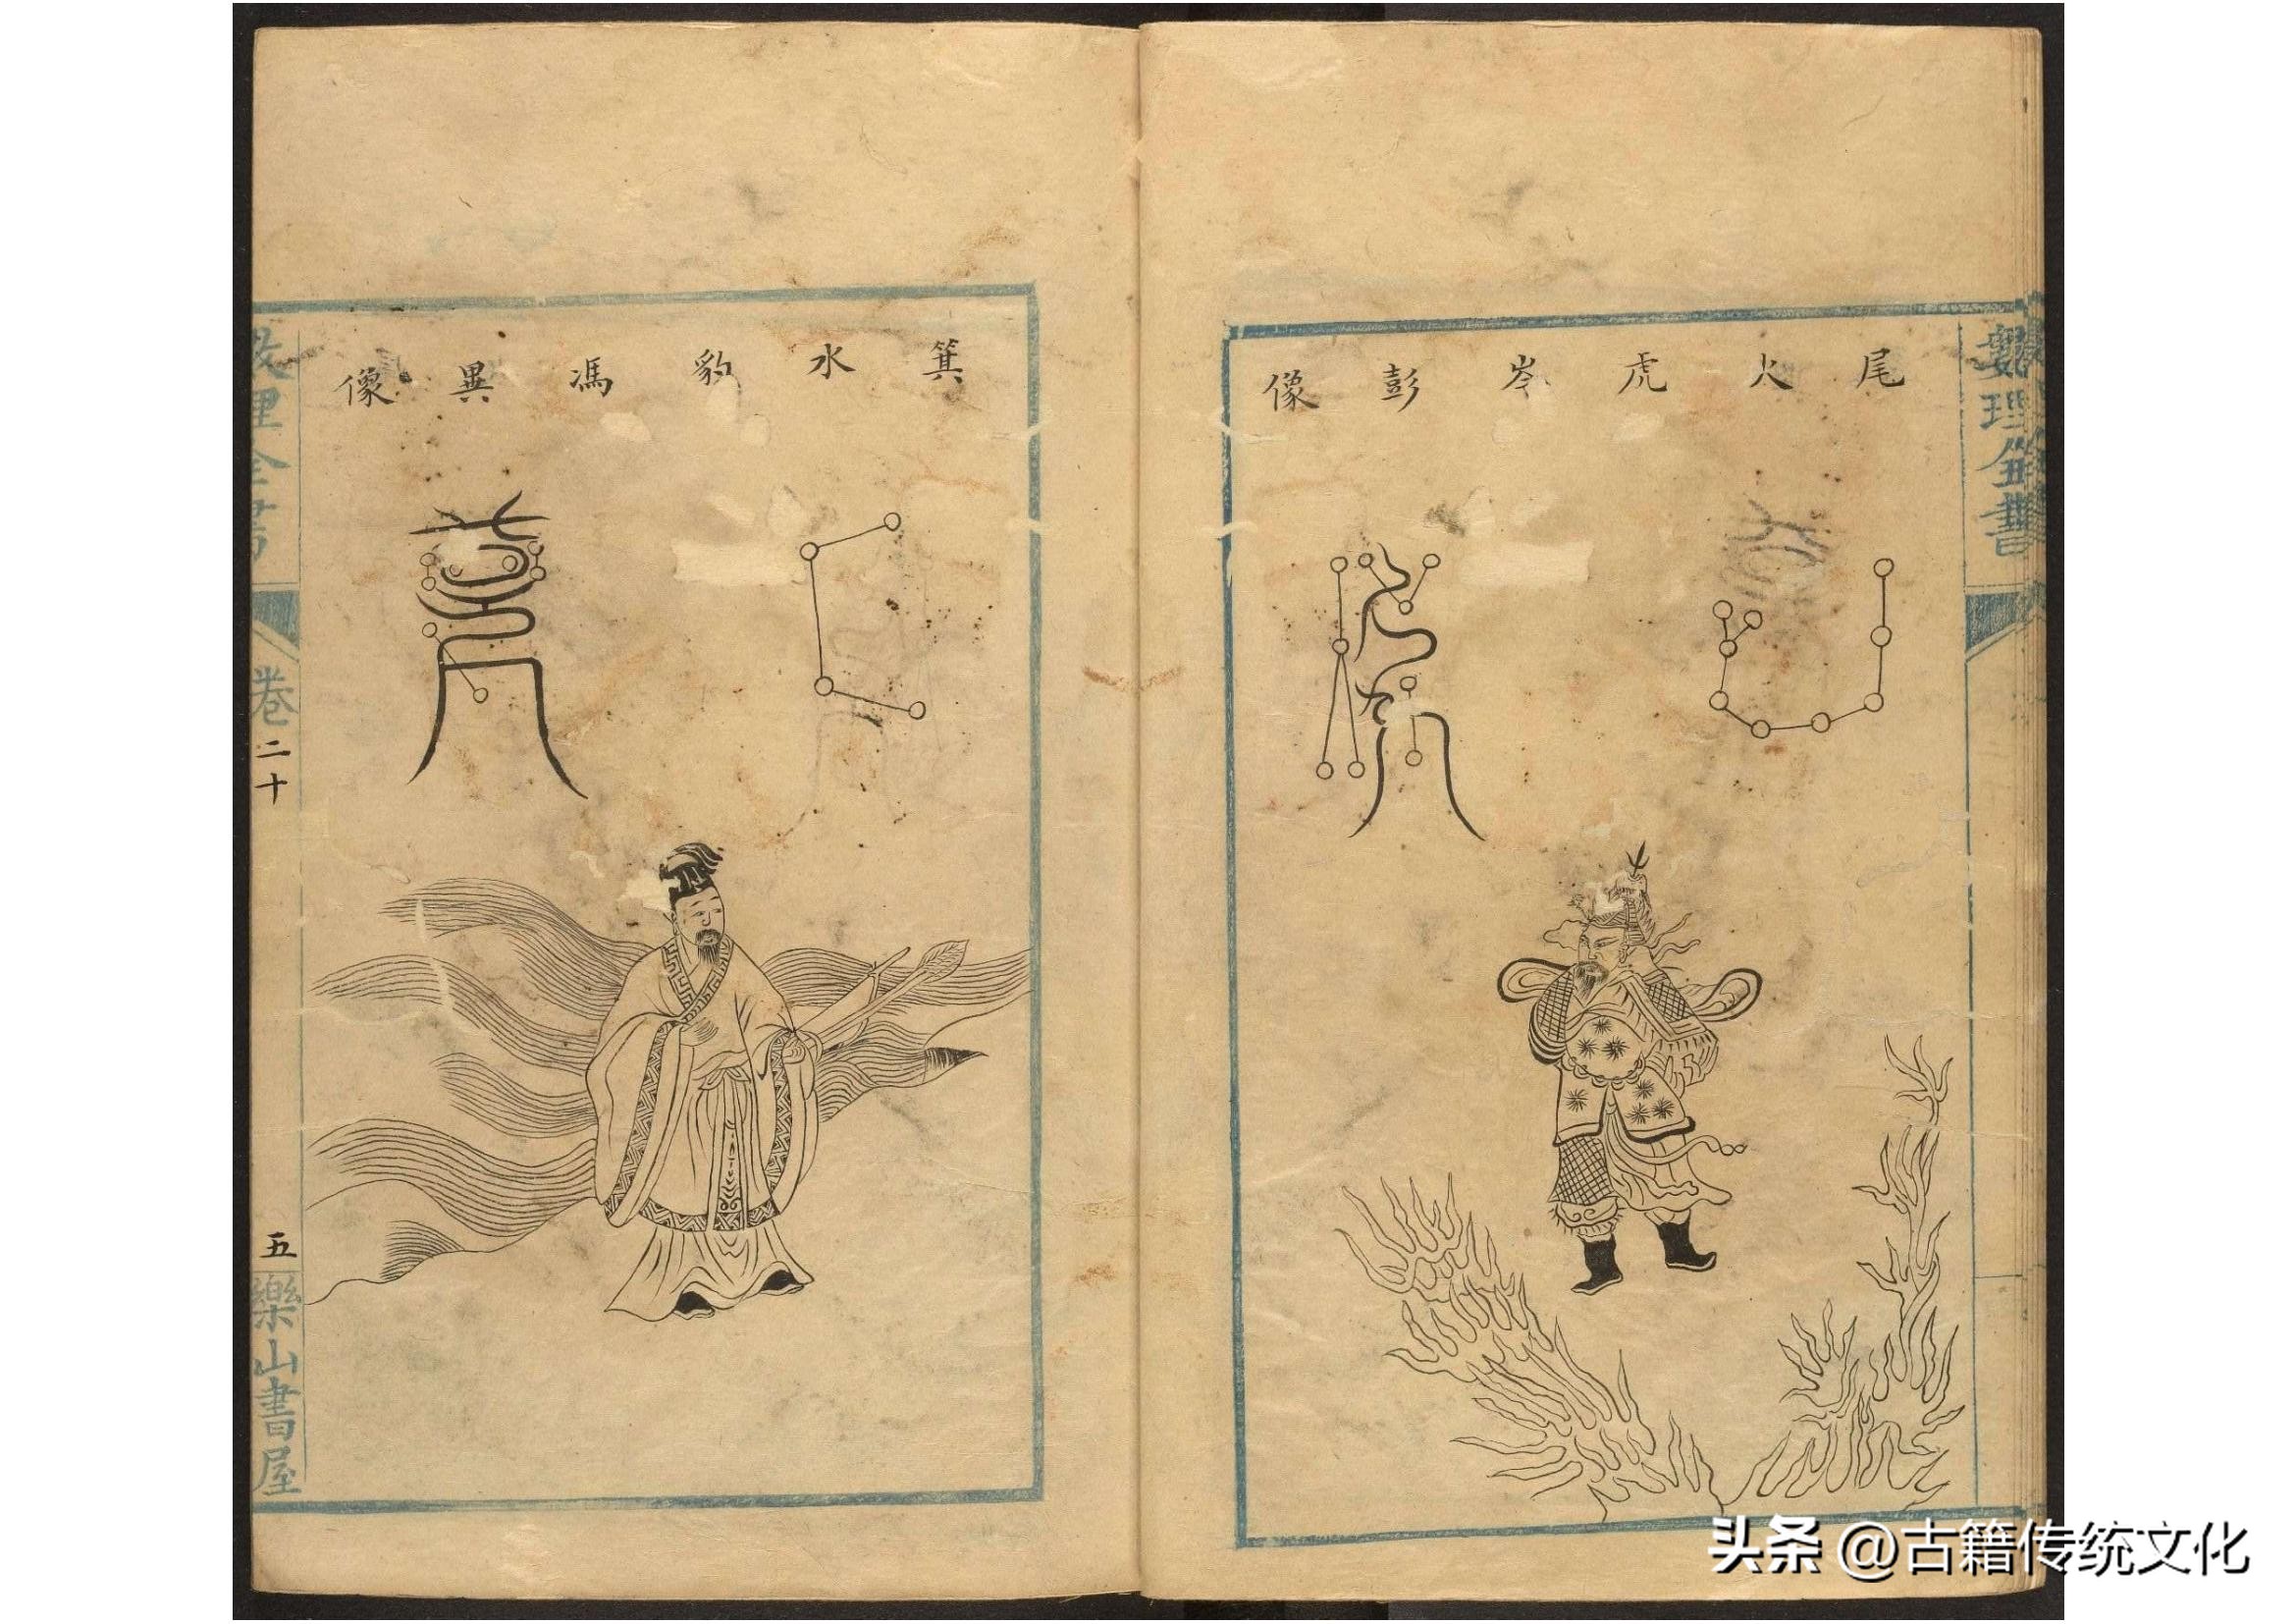 數理全書
尾火虎岑彭像
箕水豹馮異像
數理全書
卷二十
五
樂山書屋
头条 @古籍传统文化